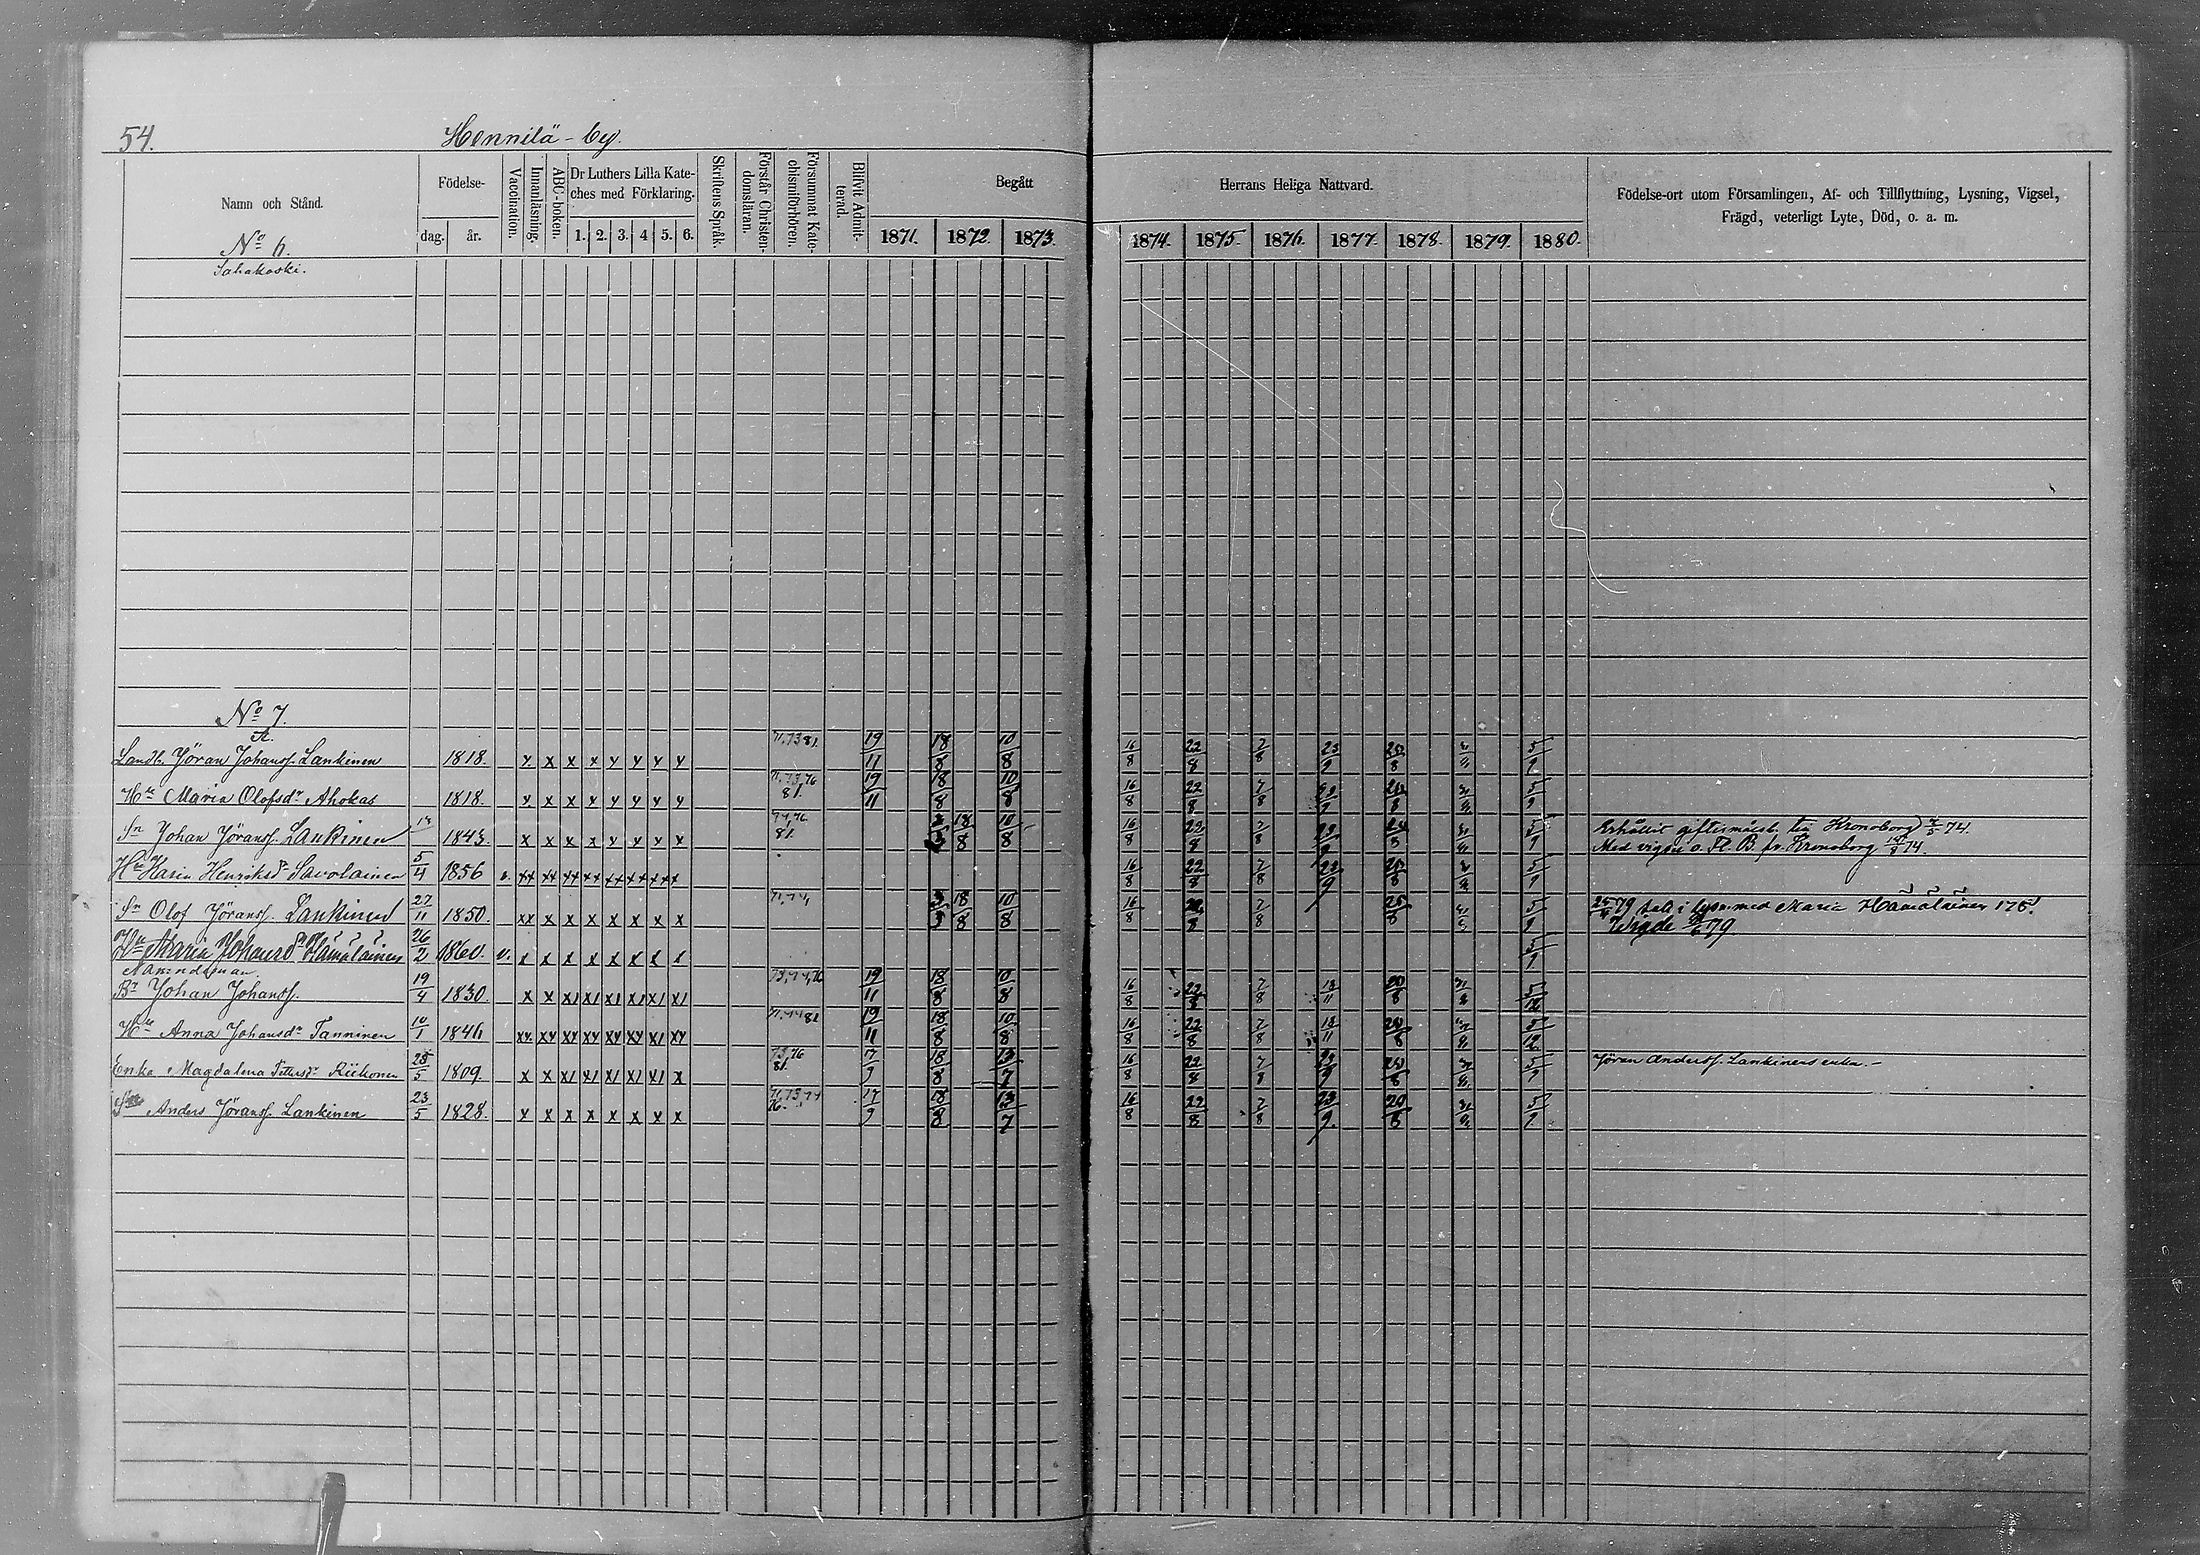 54. Hennilä - by.
Namn och Stånd. Födelse- dag. år. Vaccination. Innanläsning. ABC-boken. Dr Luthers Lilla Kateches med Förklaring. 1. 2. 3. 4 5. 6. Skriftens Språk. Förstår Christendomsläran. Försummat Katechismiförhören. Blifvit Admitterad. Begått Herrans Heliga Nattvard. Födelse-ort utom Församlingen, Af- och Tillflyttning, Lysning, Vigsel,
Frägd, veterligt Lyte, Död, o. a. m.
1871. 1872. 1873. 1874. 1875. 1876. 1877. 1878. 1879. 1880.
No 6.
Sahakoski.
No 7.
A.
Landb. Jöran Johanss. Lankinen 1818. x x x x x x x x 71,73 81. 19/11 18/8 10/8 16/8 22/8 7/8 23/9 5/9
Hu Maria Olofsdr Ahokas 1818. x x x x x x x x 71,73,76 81. 19/11 18/8 10/8 16/8 22/8 7/8 5/9
Sn Johan Jöranss. Lankinen 1843. x x x x x x x x 74,76 81. 18/8 10/8 16/8 22/8 7/8 5/9 Erhållit giftermålsb. till Kronoborg 74.
Med vigsel o. Fl. B. fr. Kronoborg 74.
Hu Karin Henriksdr Savolainen 5/4 1856 v. xx xx xx xx xx xx xx xx 16/8 22/8 7/8 23/9 5/9
Sn Olof Jöranss. Lankinen 27/11 1850. xx x x x x x x x 71,74, 18/8 10/8 16/8 7/8 5/9 79 led. i lysn. med Maria Hämäläinen
Vigde 79
Hu Maria Johansdr Hämäläinen 26/2 1860. v. x x x x x x x x 5/9
Nämndeman.
Br Johan Johanss. 19/4 1830. x x x x x x x x 73,74,76 19/11 18/8 10/8 16/8 22/8 7/8 18/11 20/8 5/12
Hu Anna Johansdr Tanninen 10/1 1846 xx xx xx xx xx xx xx xx 71,74 81 19/11 18/8 10/8 16/8 22/8 7/8 18/11 20/8 5/12
Enka Magdalena Pettersdr Riikonen 25/5 1809. x x x x x x x x 73,76 81. 7/9 18/8 13/7 16/8 22/8 7/8 23/9 20/8 5/9 Jöran Anderss. Lankinens enka. -
Anders Jöranss. Lankinen 23/5 1828. x x x x x x x x 71,73,74 76. 17/9 18/8 13/7 16/8 22/8 7/8 23/9 20/8 5/9